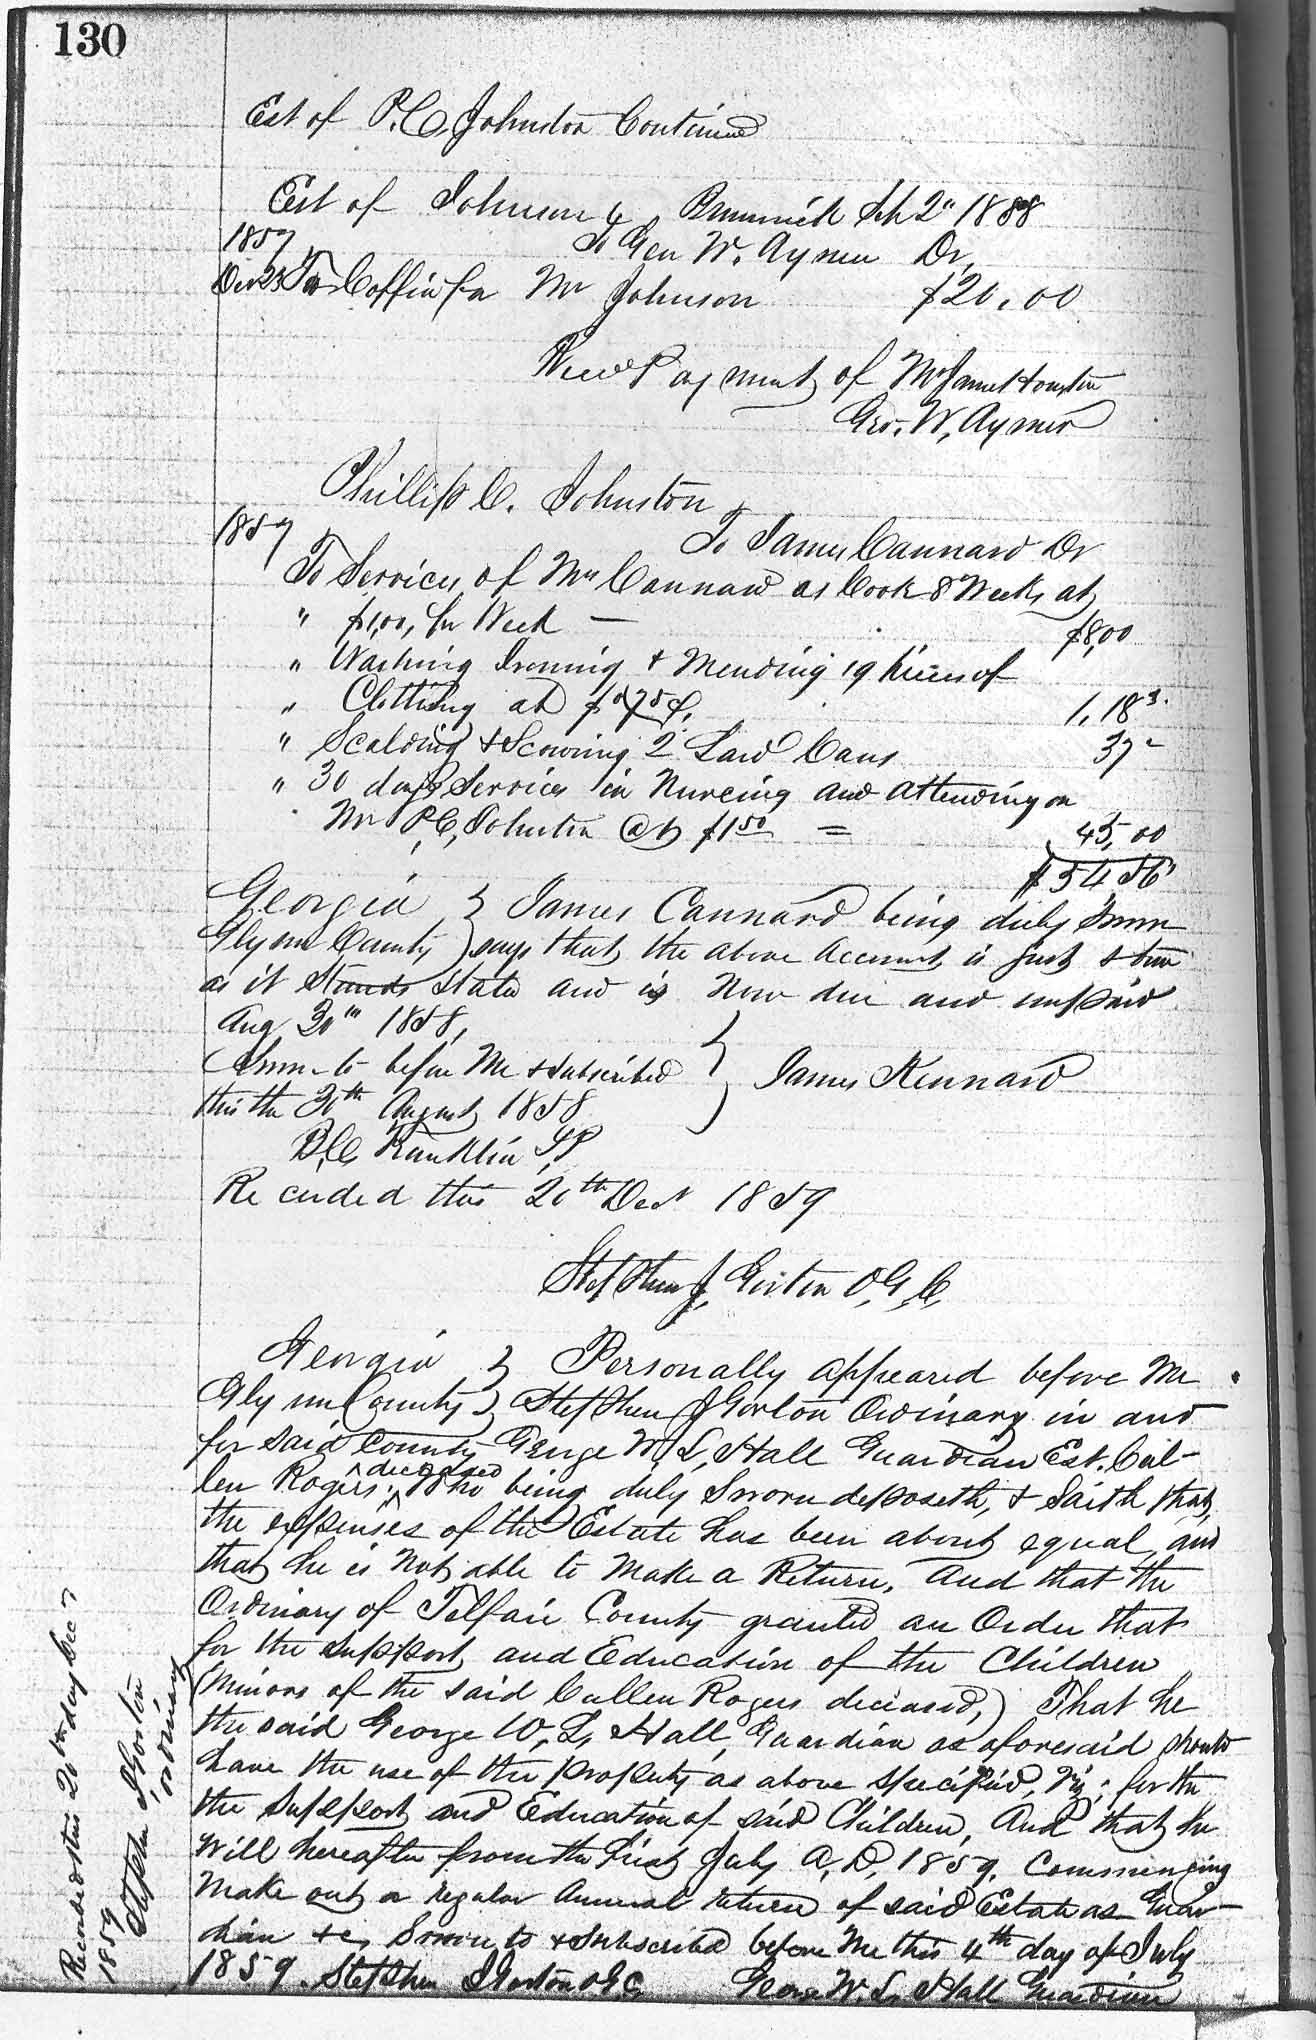 130
Est of P. C. Johnston Continued
Est of Johnson & Brunswick Feb 2" 1858
1857 To Geo W. Aymer Dr
Dec 23 To Coffin for Mr Johnson $20.00
Recd Payment of Mr James Houston
Geo. W. Aymer
Phillip C. Johnston
1857 To James Cannard Dr
To Services of Mrs Cannard as Cook 8 Weeks at
" $1,00, per Week — $8,00
" Washing Ironing & Mending 19 pieces of
" Clothing at 1,18 3.
" Scalding & Scouring 2 Lard Cans 37
" 30 days Services in Nurseing and attending on
Mr P. C, Johnston @ $1 50 = 45,00
$54 56
Georgia } James Cannard being duly sworn
Glynn County } says that the above Account is just & true
as it Stands Stated and is Now due and unpaid
Aug 30th 1858,
Sworn to before Me & subscribed } James Kennard
this the 30th August 1858
B, C, Franklin J,P,
Recorded this 20th Decr 1859
Stephen J, Gorton O, G, C,
Georgia } Personally appeared before Me
Glynn County } Stephen J Gorton Ordinary in and
for said County George W, L, Hall Guardian Est. Cul-
len Rogers deceased, Who being duly Sworn deposeth, & Saith that
the expenses of the Estate has been about equal, and
that he is Not able to Make a Return, And that the
Ordinary of Telfair County granted an Order that
for the support and Education of the Children
(Minors of the said Cullen Rogers deceased,) That he
the said George W, L, Hall, Guardian as aforesaid should
have the use of the property as above specified, Viz; for the
the Support and Education of said Children, And that he
Will hereafter from the First July A, D, 1859, Commencing
Make out a regular Annual return of said Estate as Guar-
dian &c, Sworn to & subscribed before Me this 4th day of July
1859. Stephen J Gorton O G, C George W. L, Hall Guardian
Recorded this 20th day Decr
1859
Stephen J Gorton
Ordinary